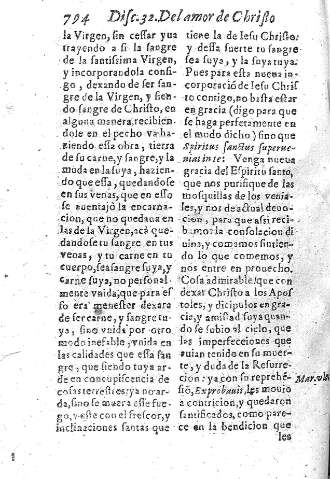 794 Disc. 32. Del amor de Christo
la Virgen, sin cessar yua
trayendo a si la sangre
de la santissima Virgen,
y incorporandola consi-
go, dexando de ser san-
gre de la Virgen, y sien-
do sangre de Christo, en
alguna manera, recibien-
dole en el pecho va ha-
ziendo essa obra, tierra
de su carne, y sangre, y la
muda en la suya, hazien-
do que essa, quedandose
en sus venas, que en esso
se auentajò la encarna-
cion, que no quedaua en
las de la Virgen, acà que-
dandose tu sangre en tus
venas, y tu carne en tu
cuerpo, sea sangre suya, y
carne suya, no personal-
mente vnida, que para es-
so era menester dexara
de ser carne, y sangre tu-
ya, sino vnida por otro
modo inefable, vnida en
las calidades que essa san
gre, que siendo tuya ar-
de en concupiscencia de
cosas terrestres ya no ar-
da, sino se muera esse fue-
go, y estè con el frescor, y
inclinaciones santas que
tiene la de Iesu Christo:
y dessa suerte tu sangre
sea suya, y la suya tuya.
Pues para esta nueua in-
corporaciō de Iesu Chris
to contigo, no basta estar
en gracia (digo para que
se haga perfetamente en
el modo dicho) sino que
Spiritus sanctus superue-
niat in te: Venga nueua
gracia del Espiritu santo,
que nos purifique de las
mosquillas de los venia-
les, y nos dè actual deuo-
cion, para que assi reci-
bamos la consolacion di
uina, y comamos sintien-
do lo que comemos, y
nos entre en prouecho.
Cosa admirable! que con
dexar Christo a los Apos
toles, y dicipulos en gra-
cia, y amistad suya quan-
do se subio al cielo, que
las imperfecciones que
auian tenido en su muer-
te, y duda de la Resurre-
cion: ya con su reprehē-
siō, Exprobauit, les mouio
a contricion, y quedaron
santificados, como pare-
ce en la bendicion que
les